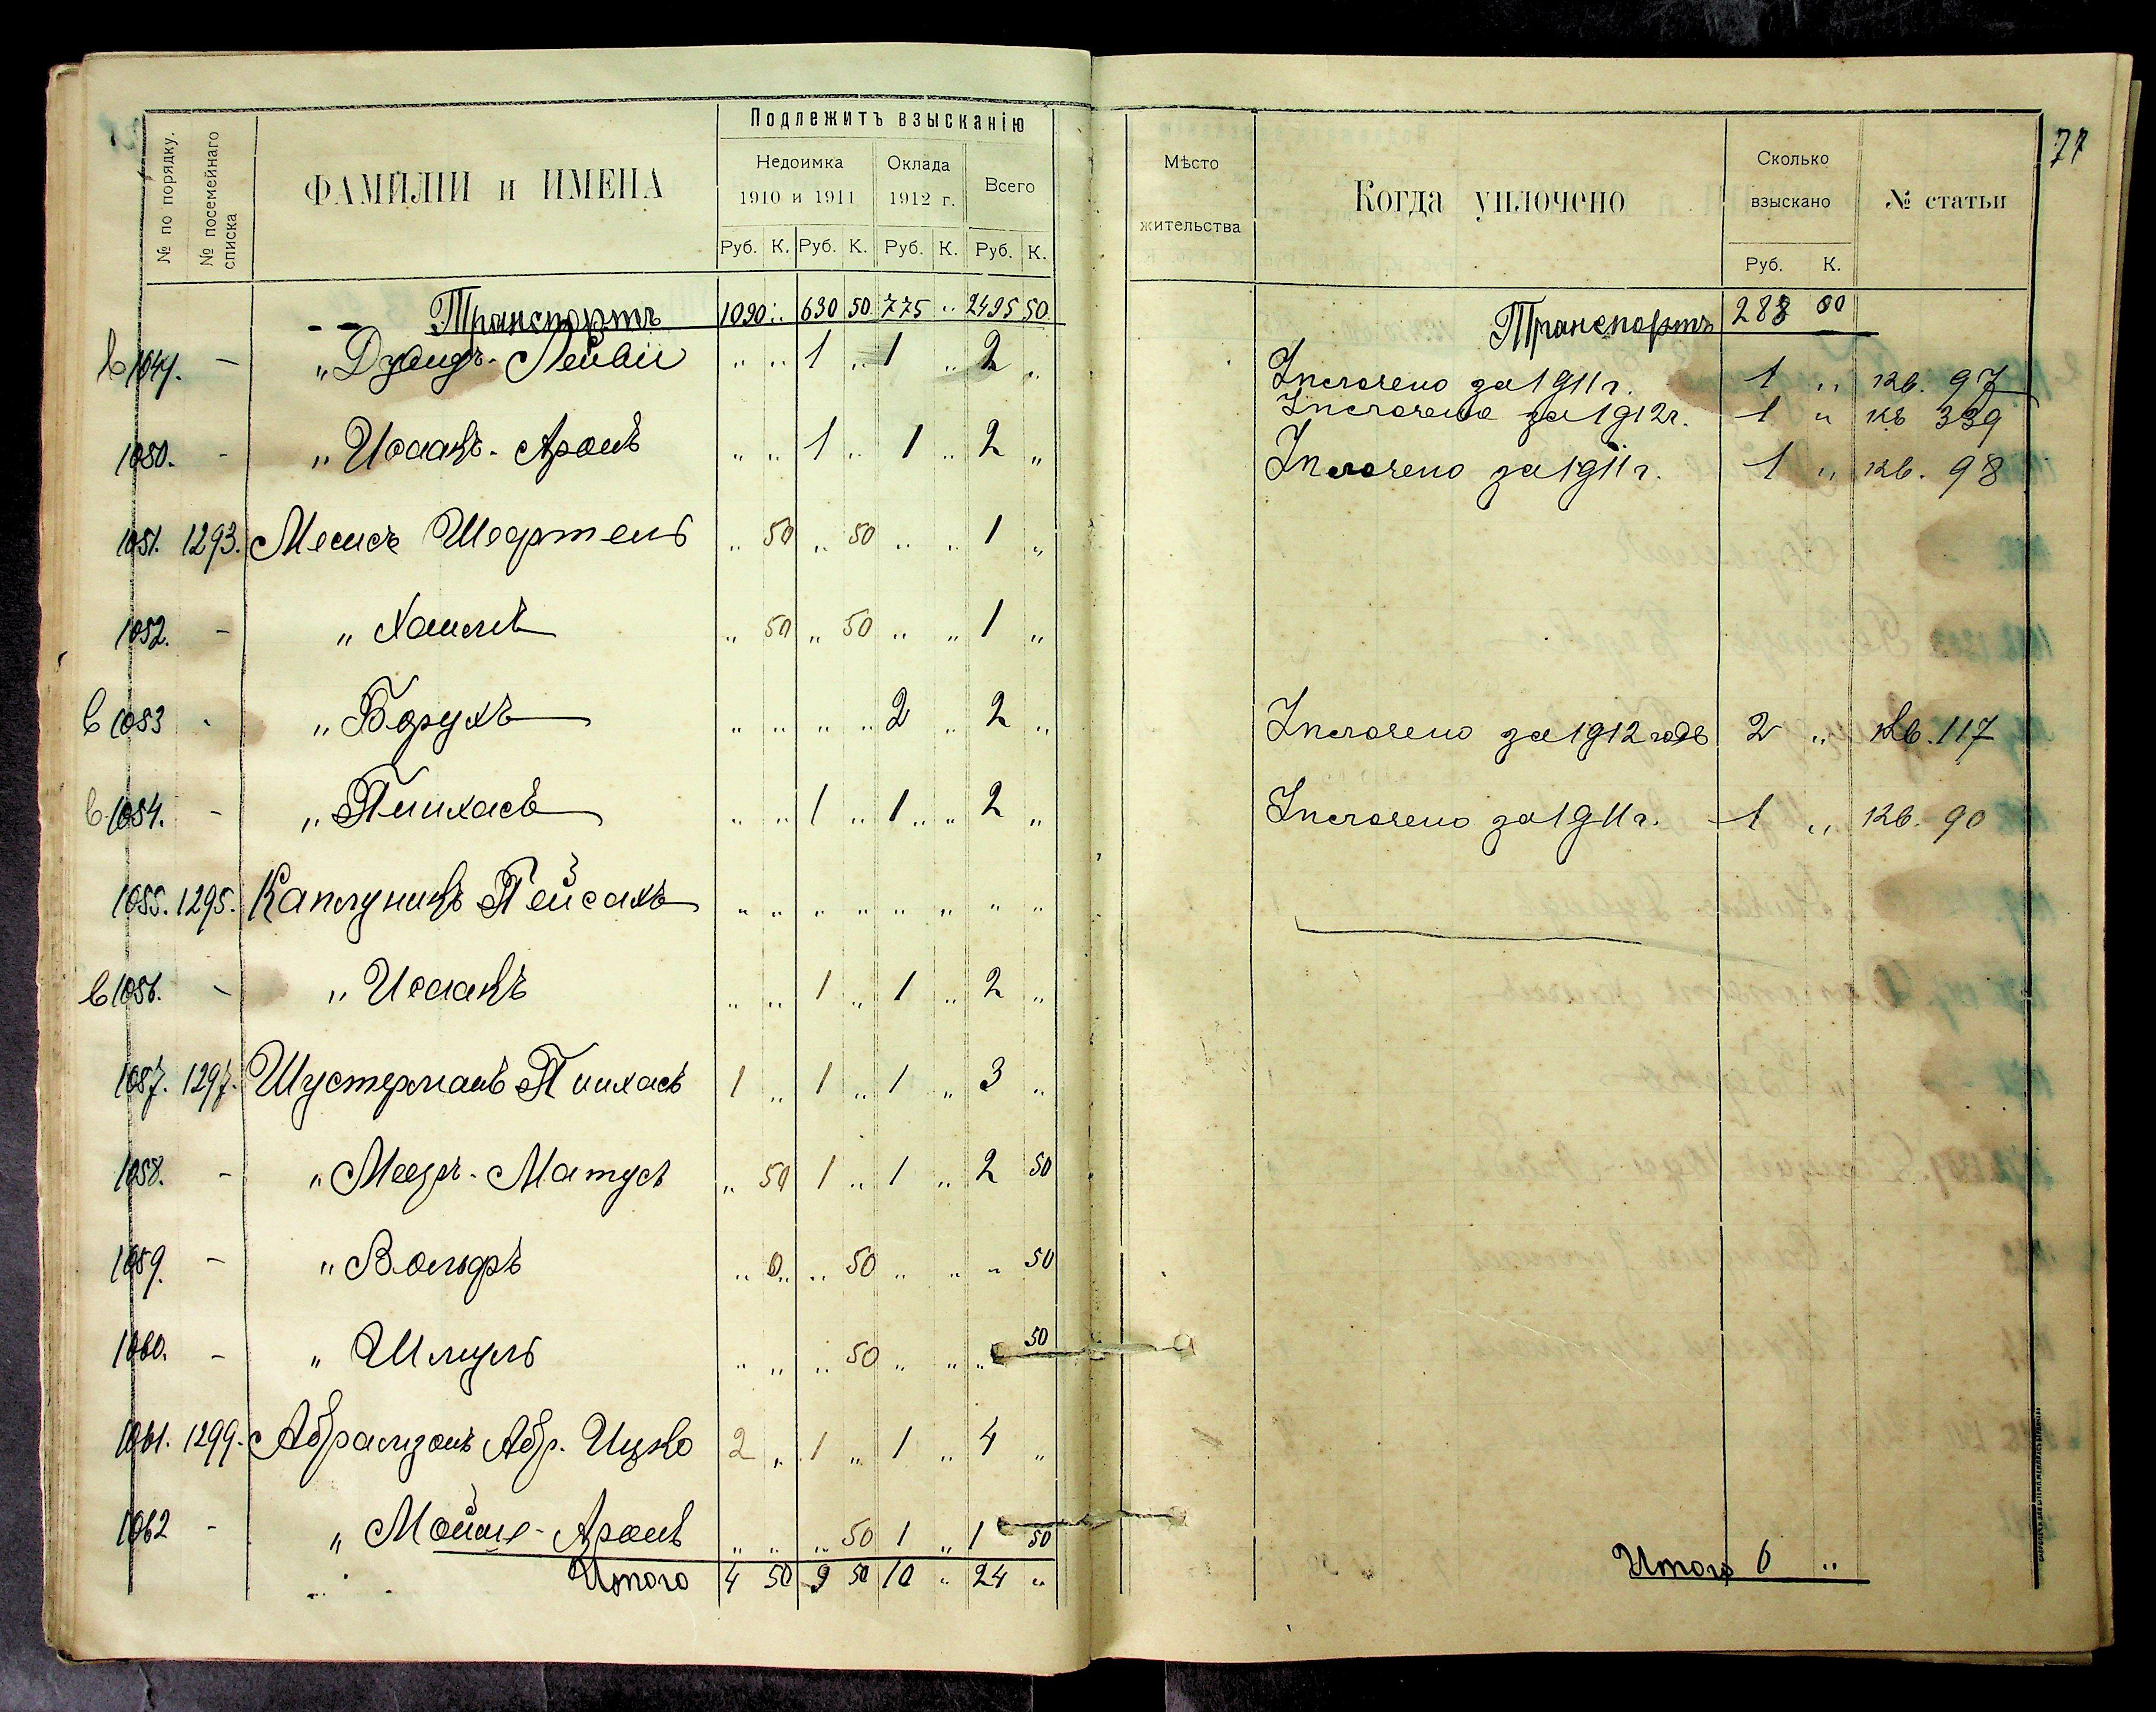 77
№ по порядку.
№ посемейнаго списка
ФАМИЛІИ и ИМЕНА
Подлежитъ взысканію
Недоимка
1910 и 1911
Оклада
1912 г.
Всего
Руб. К. Руб. К. Руб. К. Руб. К.
Мѣсто
жительства
Когда уплочено
Сколько
взыскано
Руб. К.
№ статьи
Транспортъ 1090 „ 630 50 775 „ 2495 50
Транспортъ 288 00
в 1049. - „ Дувидъ-Лейбъ „ „ 1 „ 1 „ 2 „
Уплочено за 1911 г. 1 „ кв. 97
Уплочено за 1912 г. 1 „ кв 339
1050. - „ Исаакъ-Аронъ „ „ 1 „ 1 „ 2 „
Уплочено за 1911 г. 1 „ кв. 98
1051. 1293. „ 50 „ 50 „ „ 1 „
1052. - „ „ 50 „ 50 „ „ 1 „
в 1053 - „ Борухъ „ „ „ „ 2 „ 2 „
Уплочено за 1912 годъ 2 „ кв. 117
в 1054. - „ Пинхасъ „ „ 1 „ 1 „ 2 „
Уплочено за 1911 г. 1 „ кв. 90
1055. 1295. Каплуникъ Пейсахъ „ „ „ „ „ „ „ „
в 1056. - „ Исаакъ „ „ 1 „ 1 „ 2 „
1057. 1297. Шустерманъ Пинхасъ 1 „ 1 „ 1 „ 3 „
1058. - „ Мееръ-Матусъ „ 50 1 „ 1 „ 2 50
1059. - „ Вольфъ „ „ „ 50 „ „ „ 50
1060. - „ Шмуль „ „ „ 50 „ „ „ 50
1061. 1299. Абрамзонъ Абр. Ицко 2 „ 1 „ 1 „ 4 „
1062 - „ Мойше-Аронъ „ „ „ 50 1 „ 1 50
Итого 4 50 9 50 10 „ 24 „
Итого 6 „